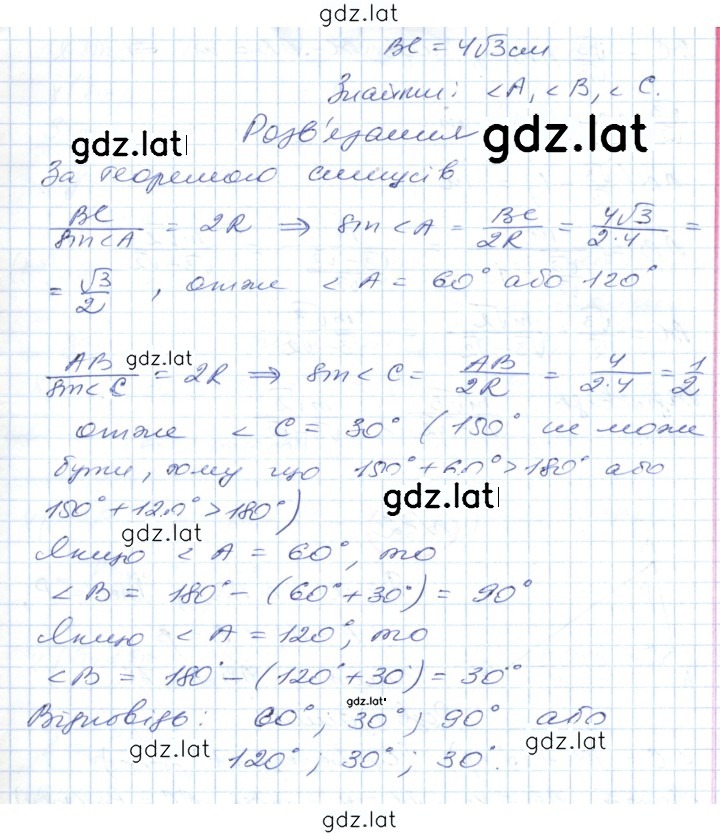 gdz.lat
BC = 4√3 см
Знайти: <A, <B, < C.
gdz.lat
Розв'язання
gdz.lat
За теоремою синусів
BC/sin<A = 2R ⇒ sin<A = BC/2R = 4√3/2·4 =
= √3/2 , отже < A = 60° або 120°
gdz.lat
AB/sin< C = 2R ⇒ sin< C = AB/2R = 4/2·4 = 1/2
отже < C = 30° (150° не може
бути, тому що 150°+60°>180° або
150°+120°>180°)
gdz.lat
gdz.lat
Якщо < A = 60°, то
<B = 180°-(60°+30°) = 90°
Якщо < A = 120°, то
<B = 180°-(120°+30°) = 30°
gdz.lat
Відповідь: 60°; 30°; 90° або
gdz.lat
gdz.lat
120°; 30°; 30°.
gdz.lat